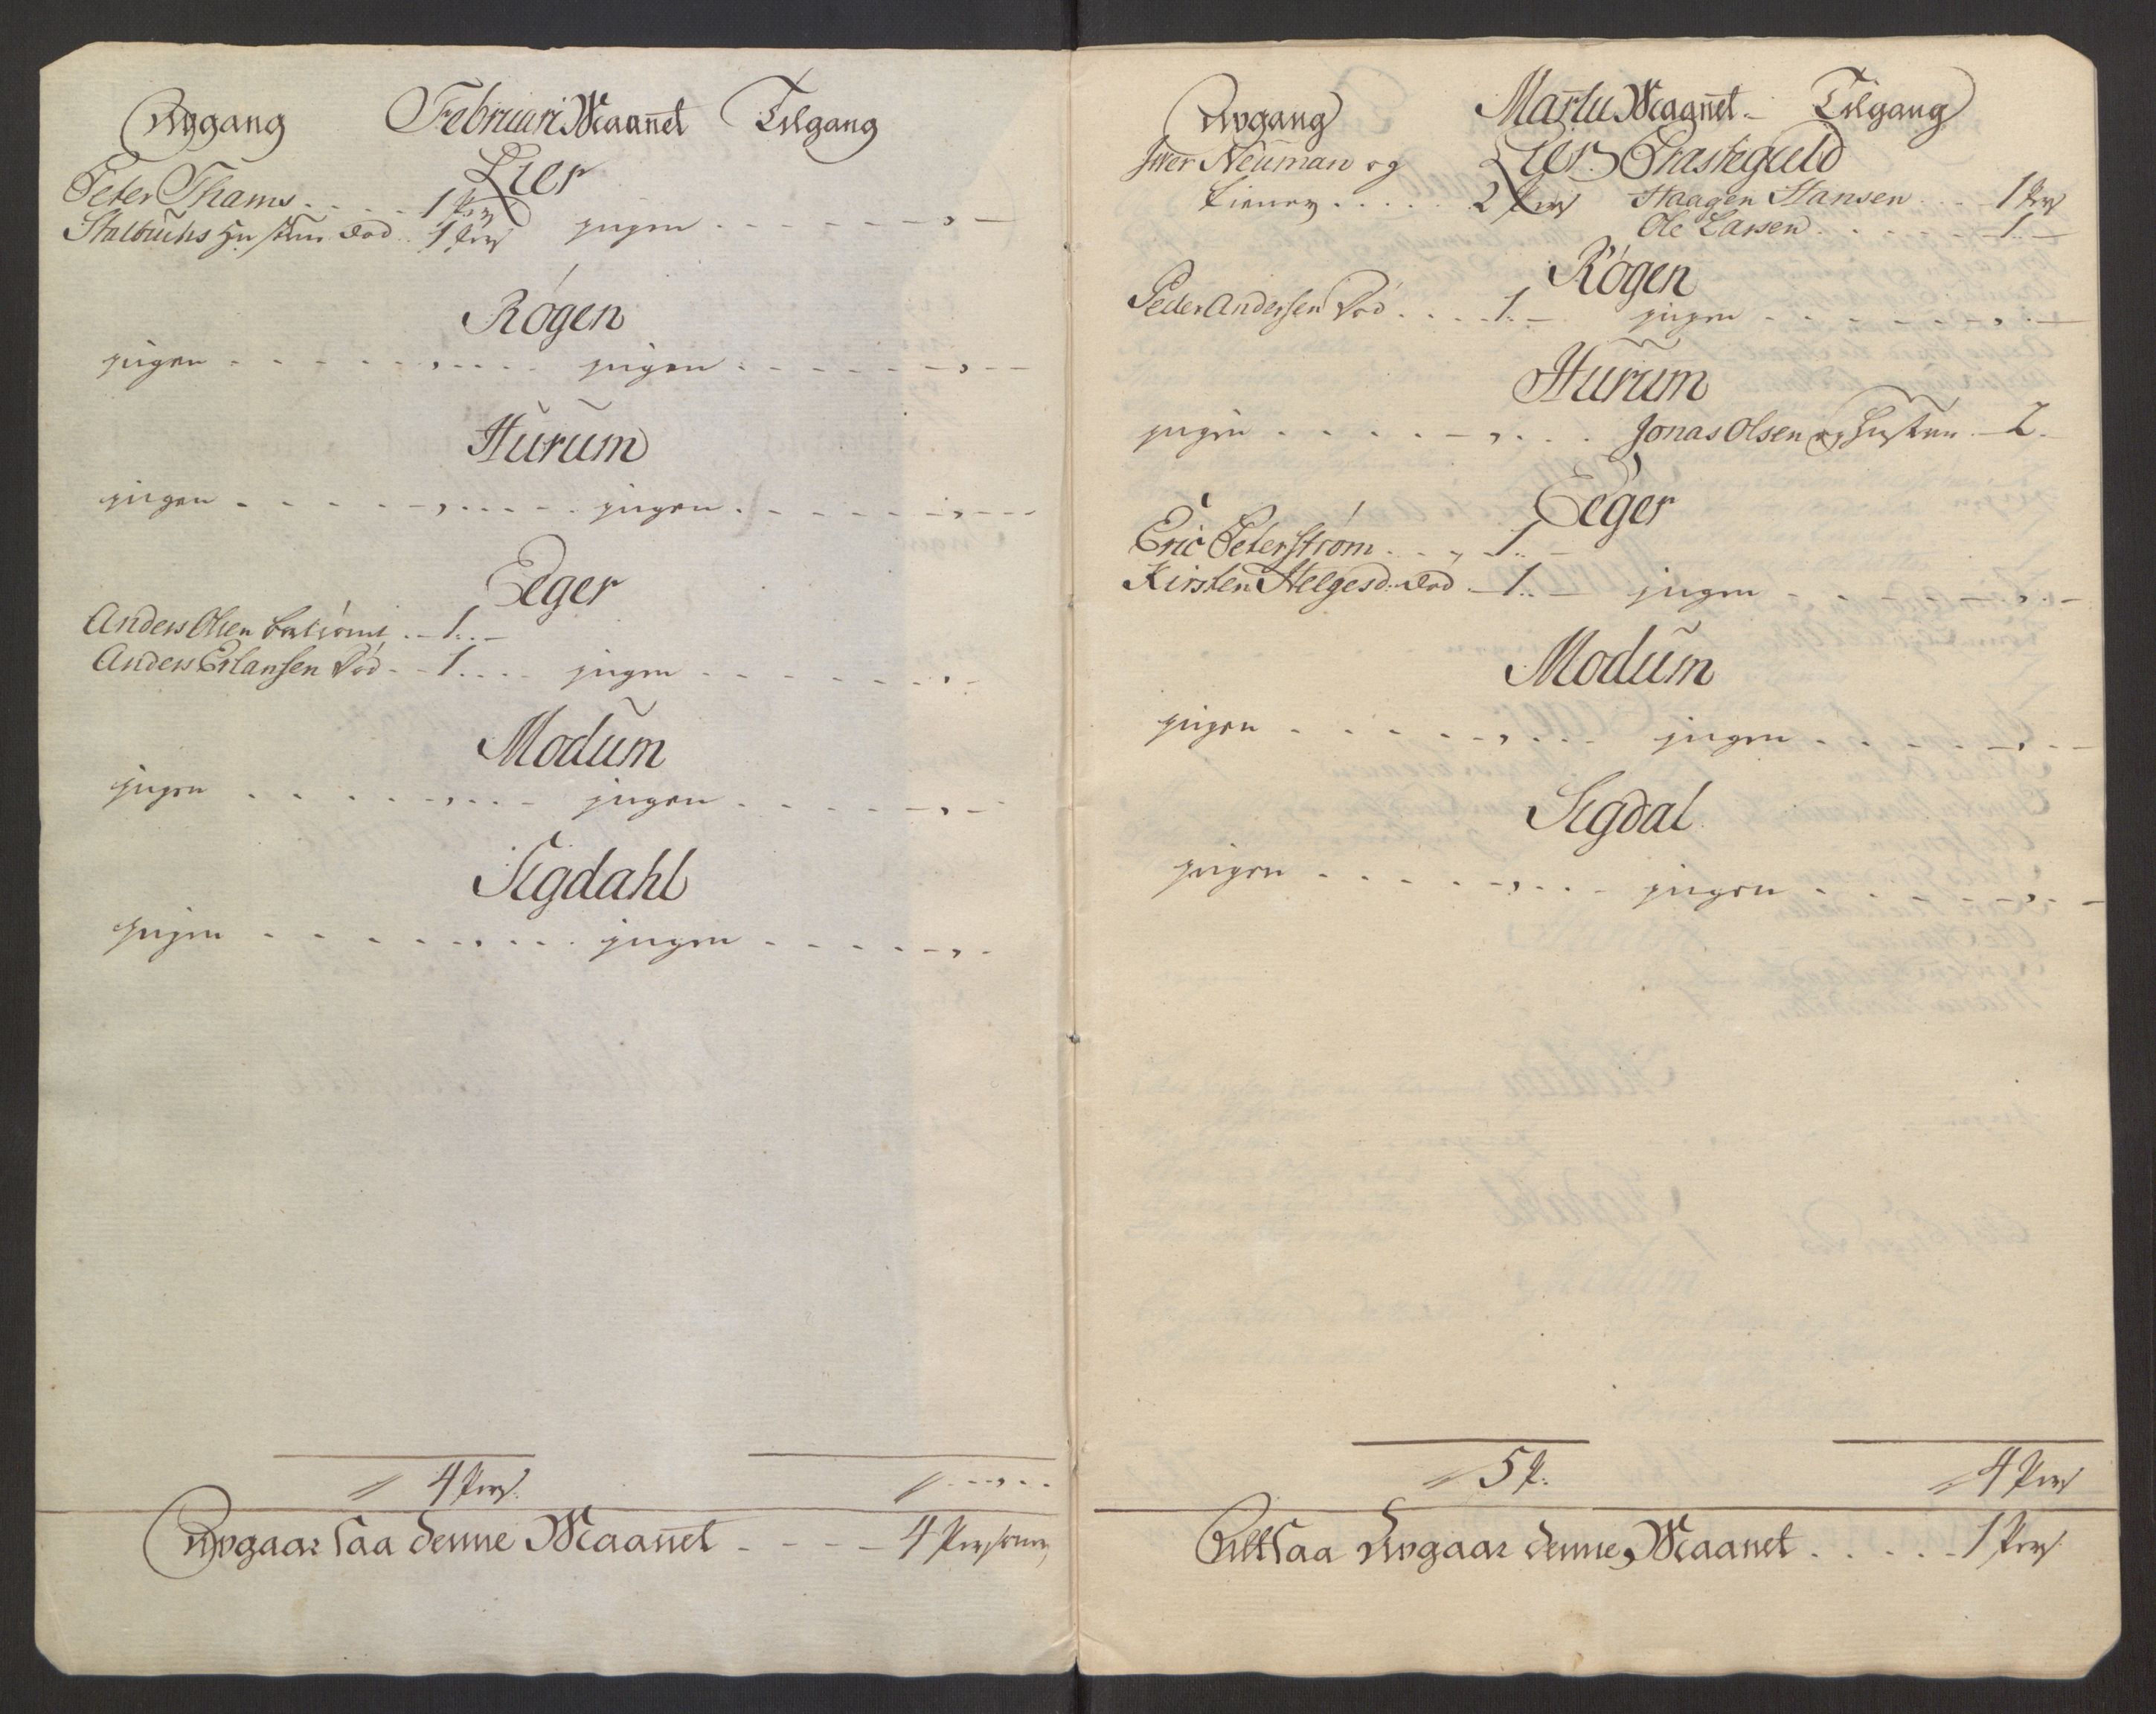 Avgang Februari Maanet Tilgang
Lier
Peter Thams . . . . 1 Pers
Stalbuhs Hustrue död . . 1 Pers ingen . . . . . . . „ —
Rögen
ingen . . . . . . „ . . . . ingen . . . . . . . „ — —
Hurum
ingen . . . . . „ . . . . . ingen . . . . . . . „ — —
Eeger
Anders Olsen . — 1 . . —
Anders Erlansen Död . — 1 . . . . ingen . . . . . . . „ —
Modum
ingen . . . . . „ . . . — ingen . . . . . — „ —
Sigdahl
ingen . . . . . „ . . . ingen . . . . . — „ —
4 Pers.
Avgaar saa denne Maanet . . . . 4 Persohner
Avgang Martii Maanet — Tilgang
Lier Præstegield
Iwer Neuman og
tiener . . . . . 2 Pers Haagen Hansen . . . 1 Pers
Ole Larsen . . . . . . 1 . . —
Rögen
Peder Andersen Död . . . . 1 . . — ingen . . . . . . . „ . —
Hurum
ingen . . . . . — „ . . . Jonas Olsen og Hustrue . — 2 .
Eeger
Eric Peterström . . . „ 1 . . —
Kirsten Helgesd: död . — 1 . . — ingen . . . . . . — „ . —
Modum
ingen . . . . . — „ . . . ingen . . . . . — „ . —
Sigdal
ingen . . . . . — „ . . — ingen . . . . . — „ . —
5 P. 4 Pers
Altsaa Avgaar denne Maanet . . . . . 1 Pers.